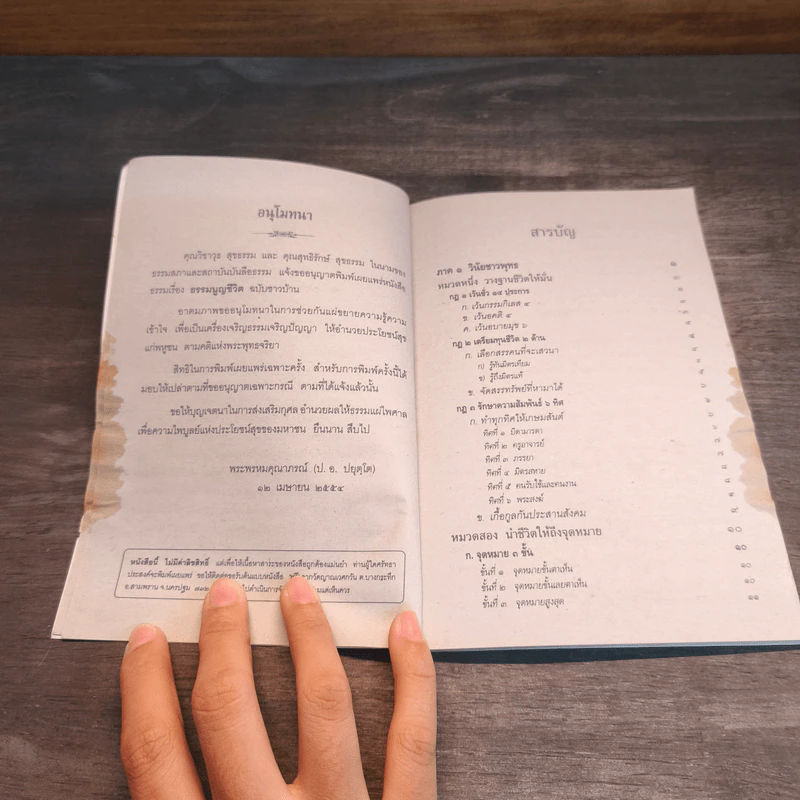 อนุโมทนา
คุณวิชาวุธ สุขธรรม และ คุณสุทธิรักษ์ สุขธรรม ในนามของ
ธรรมสภาและสถาบันบันลือธรรม แจ้งขออนุญาตพิมพ์เผยแพร่หนังสือ
ธรรมเรื่อง ธรรมนูญชีวิต ฉบับชาวบ้าน
อาตมภาพขออนุโมทนาในการช่วยกันแผ่ขยายความรู้ความ
เข้าใจ เพื่อเป็นเครื่องเจริญธรรมเจริญปัญญา ให้อำนวยประโยชน์สุข
แก่พหูชน ตามคติแห่งพระพุทธจริยา
สิทธิในการพิมพ์เผยแพร่เฉพาะครั้ง สำหรับการพิมพ์ครั้งนี้ได้
มอบให้เปล่าตามที่ขออนุญาตเฉพาะกรณี ตามที่ได้แจ้งแล้วนั้น
ขอให้บุญเจตนาในการส่งเสริมกุศล อำนวยผลให้ธรรมแผ่ไพศาล
เพื่อความไพบูลย์แห่งประโยชน์สุขของมหาชน ยืนนาน สืบไป
พระพรหมคุณาภรณ์ (ป. อ. ปยุตฺโต)
๑๒ เมษายน ๒๕๕๔
หนังสือนี้ ไม่มีค่าลิขสิทธิ์ แต่เพื่อให้เนื้อหาสาระของหนังสือถูกต้องแม่นยำ ท่านผู้ใดศรัทธา
ประสงค์จะพิมพ์เผยแพร่ ขอให้ติดต่อขอรับต้นแบบหนังสือ วัดญาณเวศกวัน ต.บางกระทึก
อ.สามพราน จ.นครปฐม
สารบัญ
ภาค ๑ วินัยชาวพุทธ ๑
หมวดหนึ่ง วางฐานชีวิตให้มั่น
กฎ ๑ เว้นชั่ว ๑๔ ประการ
ก. เว้นกรรมกิเลส ๔
ข. เว้นอคติ ๔
ค. เว้นอบายมุข ๖
กฎ ๒ เตรียมทุนชีวิต ๒ ด้าน
ก. เลือกสรรคนที่จะเสวนา
ก) รู้ทันมิตรเทียม
ข) รู้ถึงมิตรแท้
ข. จัดสรรทรัพย์ที่หามาได้
กฎ ๓ รักษาความสัมพันธ์ ๖ ทิศ
ก. ทำทุกทิศให้เกษมสันต์
ทิศที่ ๑ บิดามารดา
ทิศที่ ๒ ครูอาจารย์
ทิศที่ ๓ ภรรยา
ทิศที่ ๔ มิตรสหาย
ทิศที่ ๕ คนรับใช้และคนงาน
ทิศที่ ๖ พระสงฆ์
ข. เกื้อกูลกันประสานสังคม ๙
หมวดสอง นำชีวิตให้ถึงจุดหมาย ๑๐
ก. จุดหมาย ๓ ขั้น ๑๐
ขั้นที่ ๑ จุดหมายขั้นตาเห็น ๑๐
ขั้นที่ ๒ จุดหมายขั้นเลยตาเห็น ๑๐
ขั้นที่ ๓ จุดหมายสูงสุด ๑๑